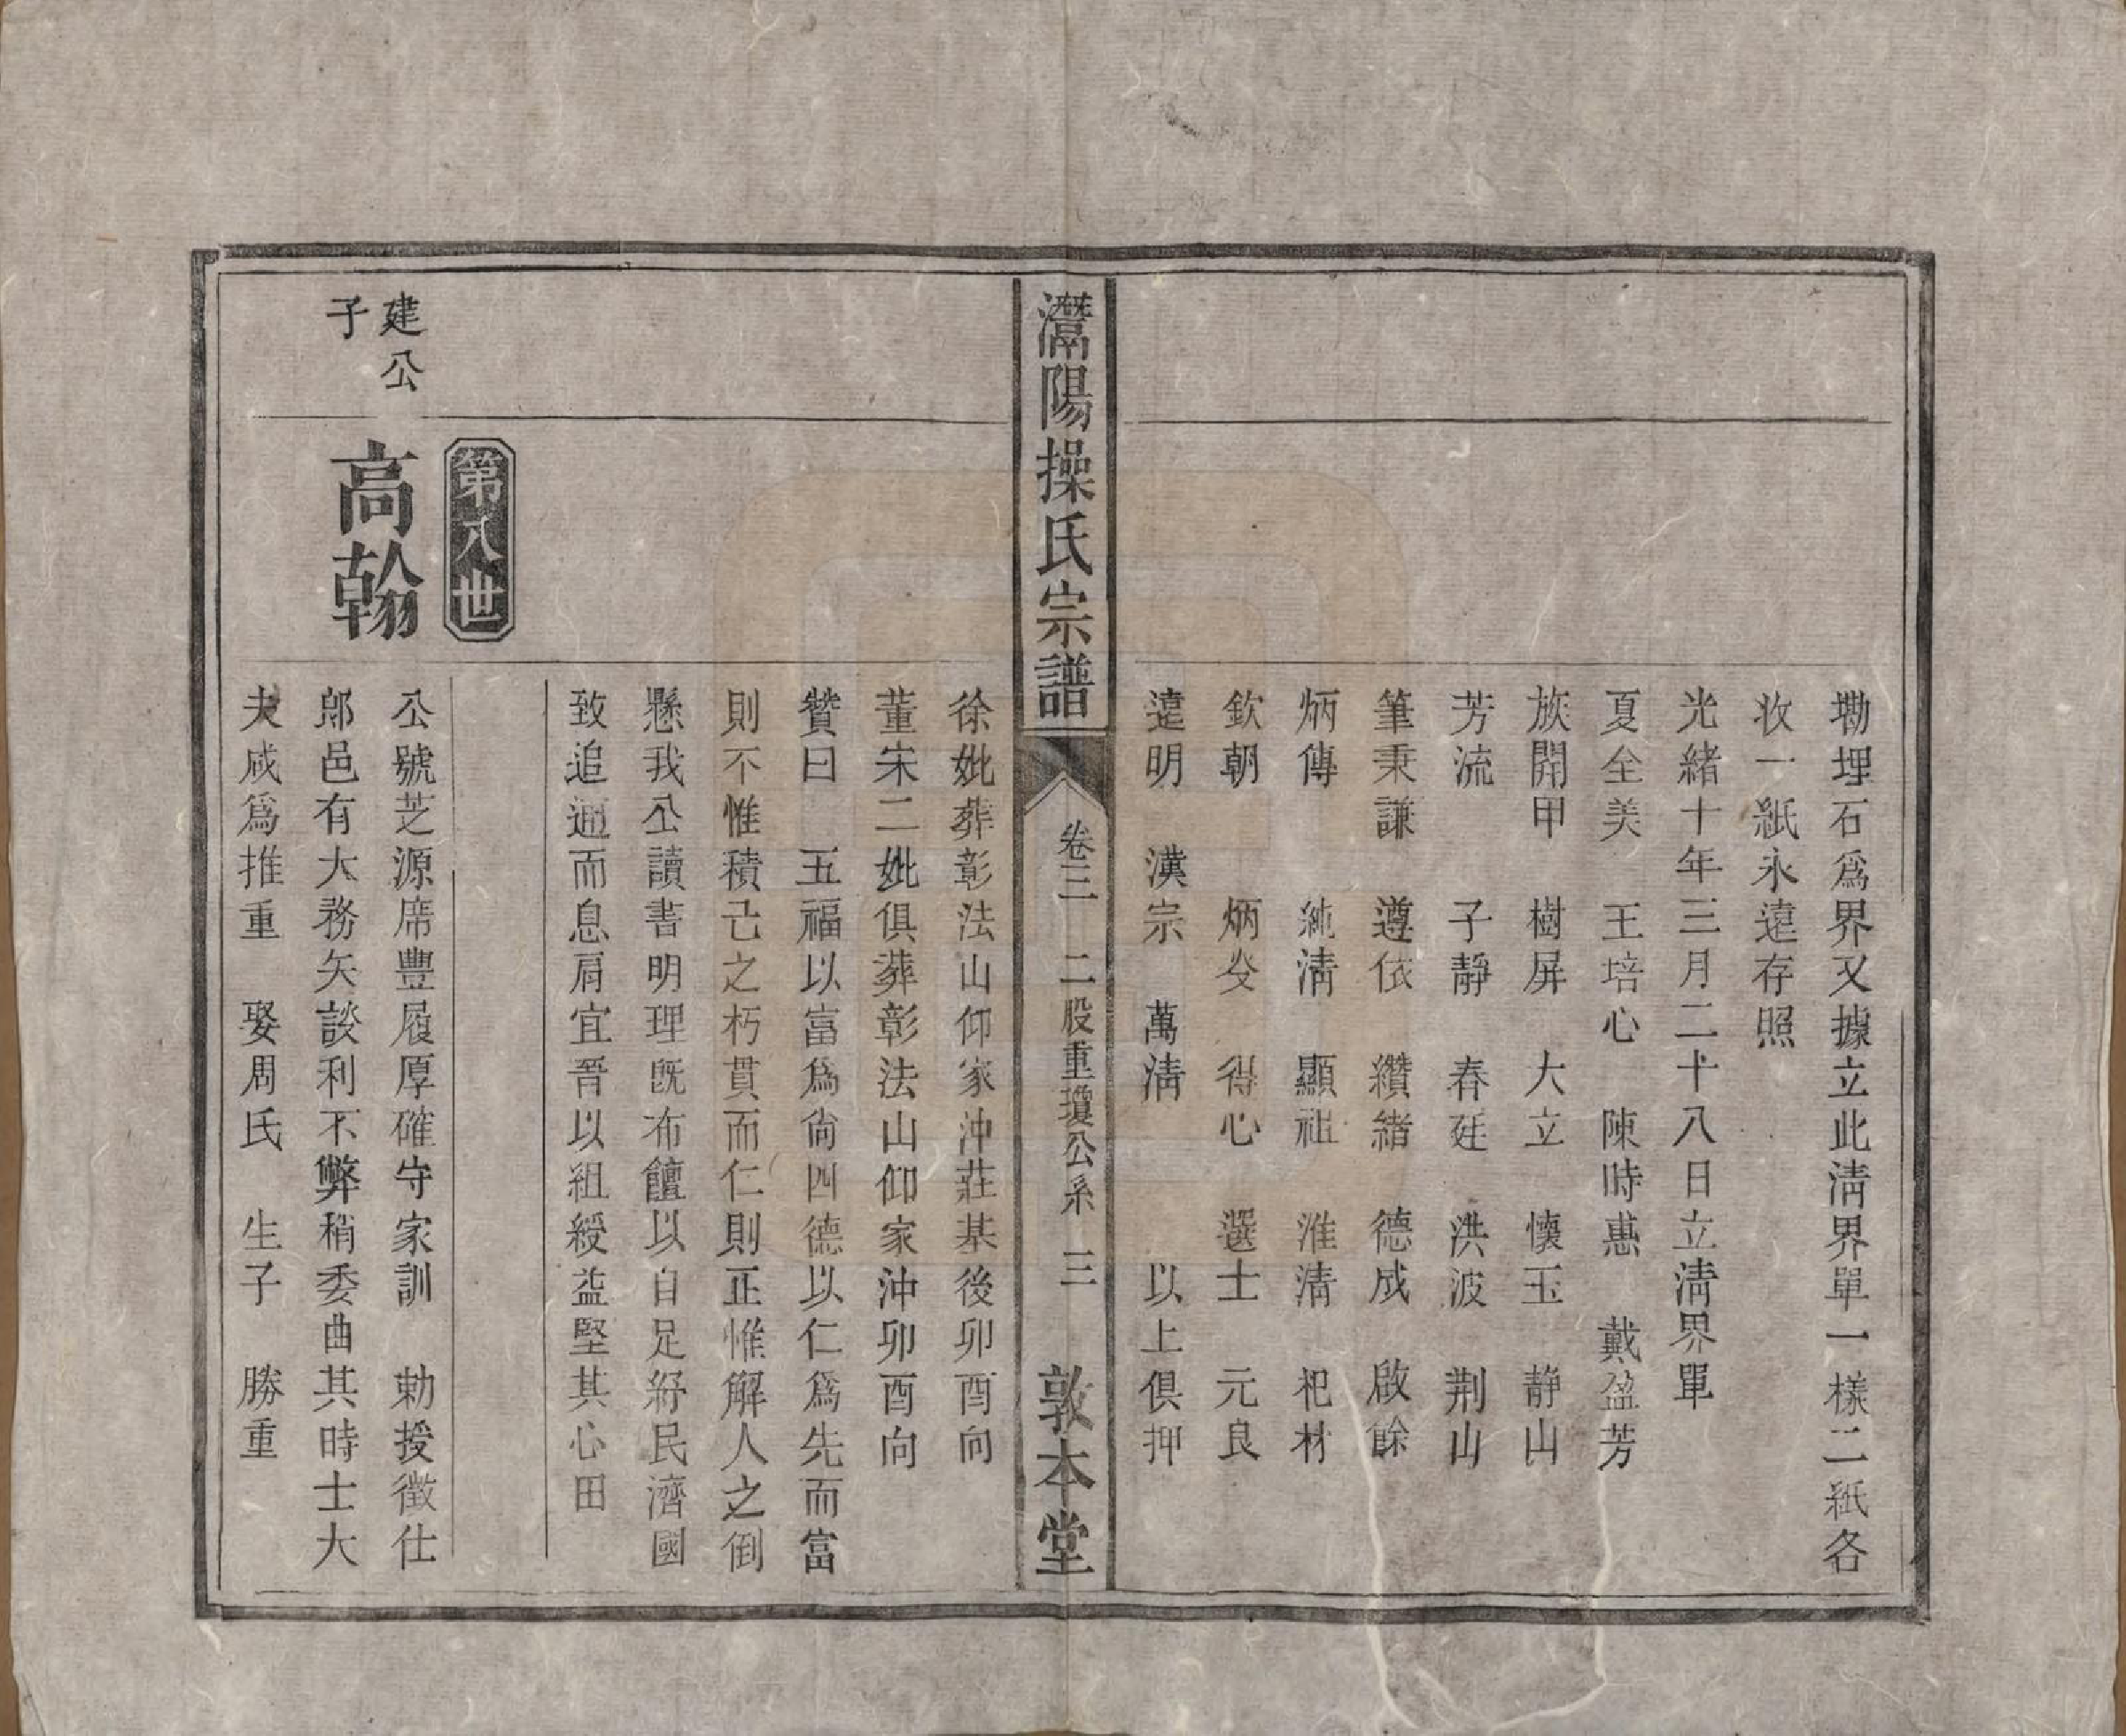 墈埋石爲界又據立此淸界單一樣二紙各
收一紙永遠存照
光緒十年三月二十八日立淸界單
夏全美　王培心　陳時惠　戴盈芳
族開甲　樹屏　大立　懷玉　静山
芳流　子靜　春廷　洪波　荆山
筆秉謙　遵依　纘緒　德成　啟餘
炳傳　純淸　顯祖　淮淸　祀材
欽朝　炳癹　得心　選士　元良
遠明　漢宗　萬淸　以上俱押
灊陽操氏宗譜
卷三　二股重瓊公系　三
敦本堂
徐妣葬彰法山仰家沖莊基後卯酉向
董宋二妣俱葬彰法山仰家沖卯酉向
贊曰　五福以富爲尚四德以仁爲先而富
則不惟積己之朽貫而仁則正惟解人之倒
懸我公讀書明理旣布饘以自足紓民濟國
致追逋而息肩宜晉以組綬益堅其心田
第八世
建公
子
高翰
公號芝源席豐履厚確守家訓　勅授徵仕
郎邑有大務矢談利不弊稍委曲其時士大
夫咸爲推重　娶周氏　生子　勝重